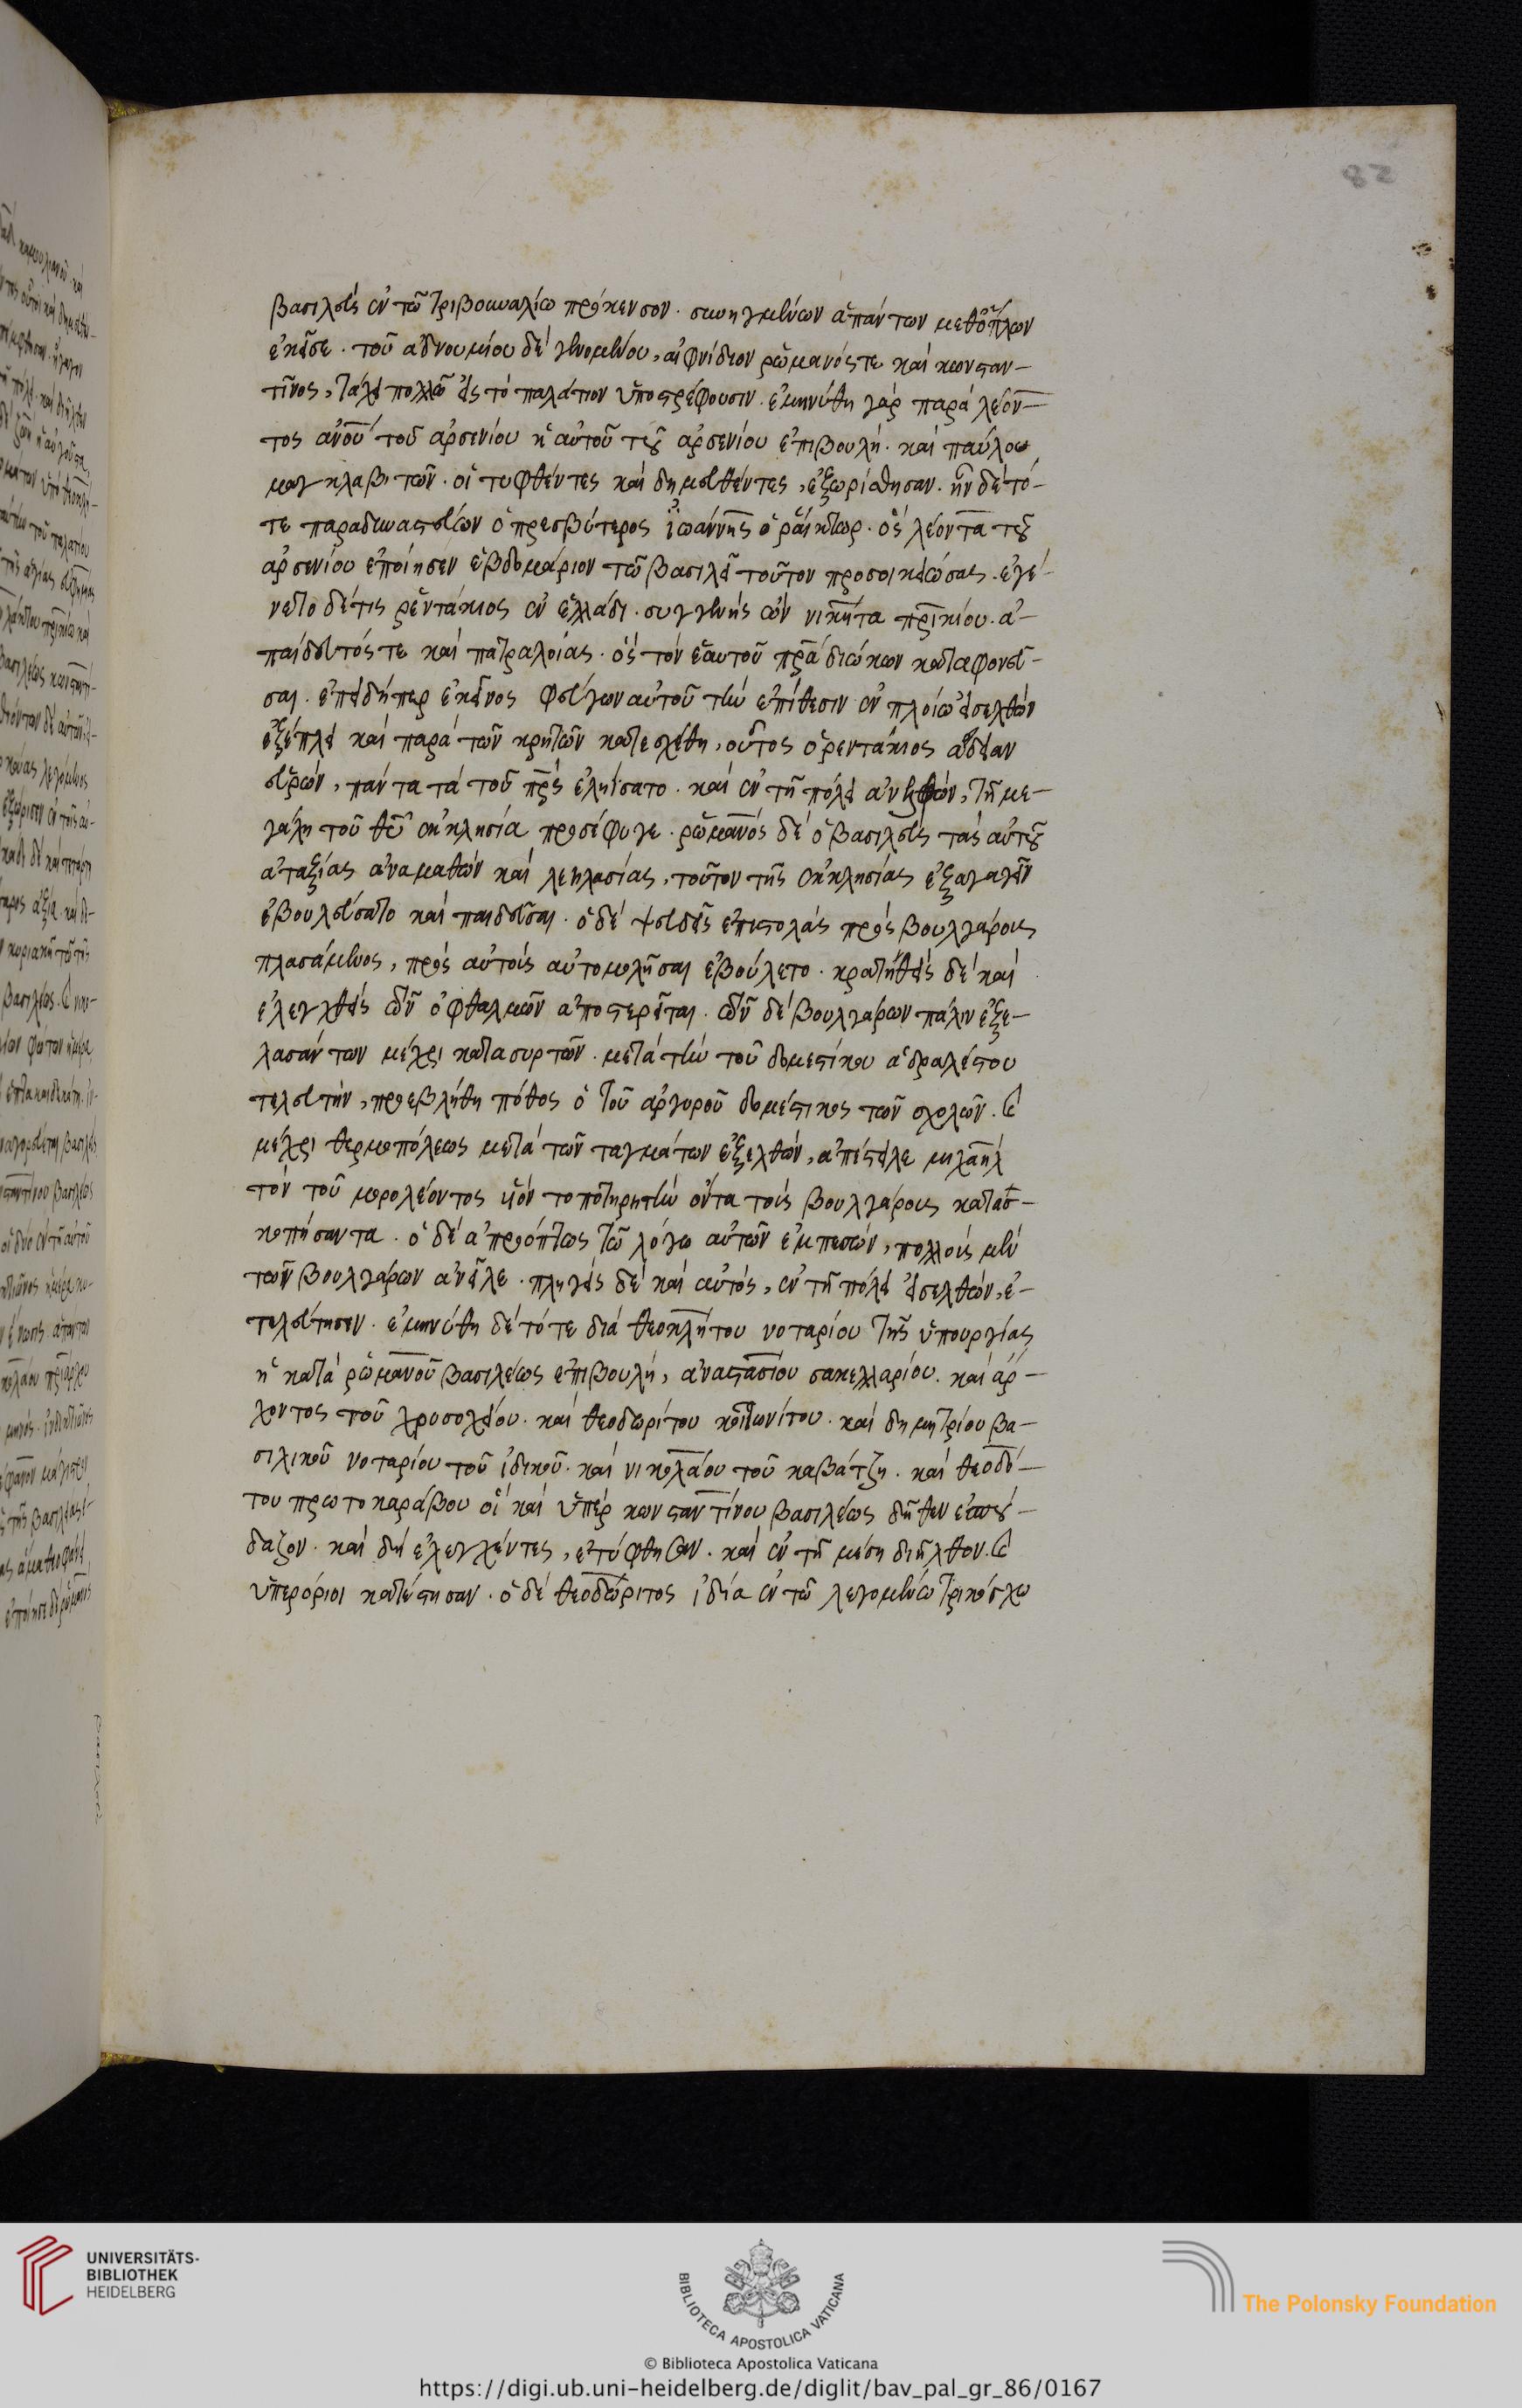 82
βασιλεὺς ἐν τῶ τριβουναλίω πρόκενσον. συνηγμένων ἁπάντων μεθόπλων
ἐκεῖσε. τοῦ ἀδνουμίου δὲ γενομένου, αἰφνίδιον ῥωμανός τε καὶ κωνσταν-
τῖνος, τάχει πολλῶ εἰς τὸ παλάτιον ὑποστρέφουσιν. ἐμηνύθη γὰρ παρὰ λέον-
τος ἀνοῦ τοῦ ἀρσενίου ἡ αὐτοῦ τοῦ ἀρσενίου ἐπιβουλή. καὶ παύλου
μαγκλαβιτῶν. οἳ τυφθέντες καὶ δημευθέντες, ἐξωρίσθησαν. ἦν δὲ τό-
τε παραδυναστεύων ὁ πρεσβύτερος ἰωάννης ὁ ῥαίκτωρ. ὃς λέοντα τοῦ
ἀρσενίου ἐποίησεν ἑβδομάριον τῶ βασιλεῖ τοῦτον προσοικειώσας. ἐγέ-
νετο δέ τις ῥεντάκιος ἐν ἑλλάδι. συγγενὴς ὢν νικήτα πρικίου. ἀ-
παίδευτός τε καὶ πατραλοίας. ὃς τὸν ἑαυτοῦ πρα διώκων καταφονεῦ-
σαι. ἐπειδήπερ ἐκεῖνος φεύγων αὐτοῦ τὴν ἐπίθεσιν ἐν πλοίω εἰσελθὼν
ἐξέπλει καὶ παρὰ τῶν κρητῶν κατεσχέθη, οὗτος ὁ ρεντάκιος ἄδειαν
εὑρὼν, πάντα τὰ τοῦ πρς ἐληΐσατο. καὶ ἐν τῆ πόλει ἀνελθὼν, τῆ με-
γάλη τοῦ θυ ἐκκλησία προσέφυγε. ῥωμανὸς δὲ ὁ βασιλεὺς τὰς αὐτοῦ
ἀταξίας ἀναμαθὼν καὶ λεηλασίας, τοῦτον τῆς ἐκκλησίας ἐξαγαγεῖν
ἐβουλεύσατο καὶ παιδεῦσαι. ὁ δὲ ψευδεῖς ἐπιστολὰς πρὸς βουλγάρους
πλασάμενος, πρὸς αὐτοὺς αὐτομολῆσαι ἐβούλετο. κρατηθεὶς δὲ καὶ
ἐλεγχθεὶς τῶν ὀφθαλμῶν ἀποστερεῖται. τῶν δὲ βουλγάρων πάλιν ἐξε-
λασάντων μέχρι κατασυρτῶν. μετὰ τὴν τοῦ δομεστίκου ἀδραλέστου
τελευτὴν, προεβλήθη πόθος ὁ τοῦ ἀργυροῦ δομέστικος τῶν σχολῶν. καὶ
μέχρι θερμοπόλεως μετὰ τῶν ταγμάτων ἐξελθὼν, ἀπέστειλε μιχαὴλ
τὸν τοῦ μορολέοντος υἱὸν τοποτηρητὴν ὄντα τοὺς βουλγάρους κατασ-
κοπήσαντα. ὁ δὲ ἀπροόπτως τῶ λόχω αὐτῶν ἐμπεσὼν, πολλοὺς μὲν
τῶν βουλγάρων ἀνεῖλε. πληγεὶς δὲ καὶ αὐτὸς, ἐν τῆ πόλει εἰσελθὼν, ἐ-
τελεύτησεν. ἐμηνύθη δὲ τότε διὰ θεοκλήτου νοταρίου τῆς ὑπουργίας
ἡ κατὰ ῥωμανοῦ βασιλέως ἐπιβουλὴ, ἀναστασίου σακελλαρίου. καὶ ἄρ-
χοντος τοῦ χρυσοχείου. καὶ θεοδωρίτου κοιτωνίτου. καὶ δημητρίου βα-
σιλικοῦ νοταρίου τοῦ ἰδικοῦ. καὶ νικολάου τοῦ καβάτζη. καὶ θεοδό-
του πρωτοκαράβου οἳ καὶ ὑπὲρ κωνσταντίνου βασιλέως δῆθεν ἐσπού-
δαζον. καὶ δὴ ἐλεγχέντες, ἐτύφθησαν. καὶ ἐν τῆ μέση διῆλθον. καὶ
ὑπερόριοι κατέστησαν. ὁ δὲ θεοδώριτος ἰδία ἐν τῶ λεγομένω τρικόγχω
UNIVERSITÄTS-
BIBLIOTHEK
HEIDELBERG
BIBLIOTECA APOSTOLICA VATICANA
© Biblioteca Apostolica Vaticana
The Polonsky Foundation
https://digi.ub.uni-heidelberg.de/diglit/bav_pal_gr_86/0167